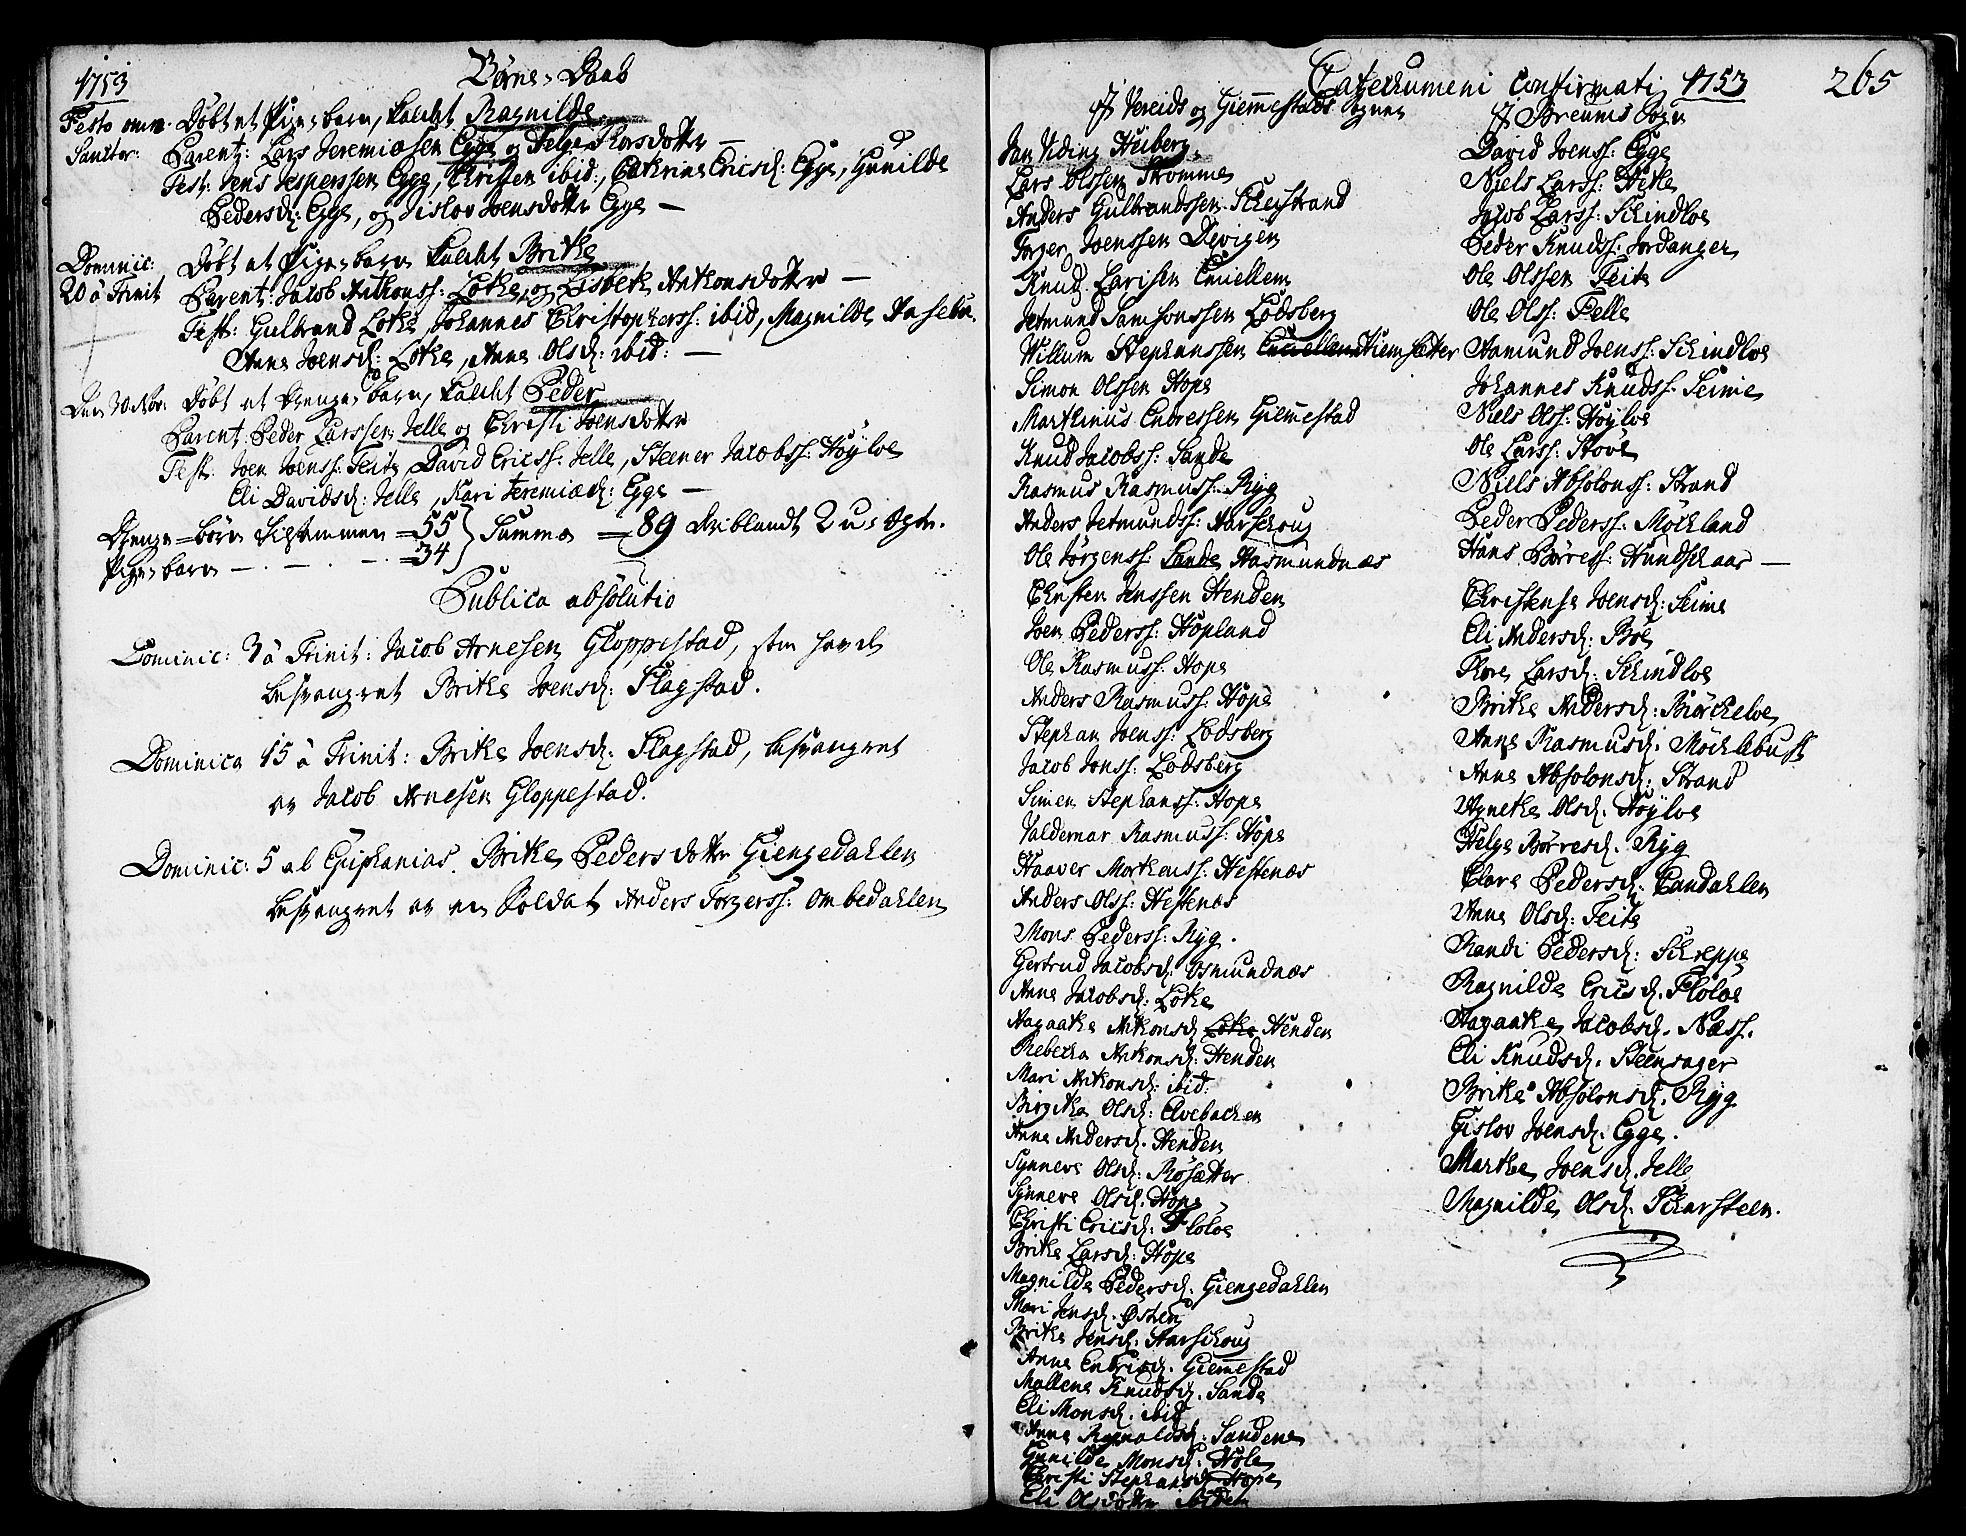 1753 Børne-Daab
Festo omn. Døbt et Pige-barn, kaldet Ragnilde
Sanctor: Parent: Lars Jeremiasen Egge og Helge Thorsdotter —
Test: Jens Jesperssen Egge, Christen ibid:, Cathrine Ericsd: Egge, Gunilde
Pedersd: Egge, og Gislov Joensdotter Egge —
Dominic: Døbt et Pige-barn kaldet Brithe
20 a Trinit Parent: Jacob Anthonss: Lothe, og Lisbeth Anthonsdotter —
Test: Gulbrand Lothe, Johannes Christophers: ibid, Magnilde
Anne Joensd: Lothe, Anne Olsd: ibid: —
Den 30 Nov: Døbt et Drenge-barn, kaldet Peder
Parent: Peder Larssen Jelle og Christi Joensdotter
Test. Joen Joenss: Feite, David Ericss: Jelle, Steener Jacobss: Høyloe
Eli Davidsd: Jelle, Kari Jeremiæd: Egge —
Drenge-børn tilsammen = 55 } Summa = 89 iblandt 2 uægte.
Pige-børn — . — . — . = 34
Publica absolutio
Dominic: 3 a Trinit: Jacob Arnesen Gloppestad, som havde
besvangret Brithe Joensd: Flagstad.
Dominica 15 a Trinit: Brithe Joensd: Flagstad, besvangret
av Jacob Arnesen Gloppestad.
Dominic: 5 ab Epiphanias. Brithe Pedersdotter Giengedahlen
besvangret av en Soldat Anders Torgerss: Ombedahlen
Catechumeni confirmati 1753 265
af Vereids og Giemmestads Sogner
Jan Uding Heiberg,
Lars Olssen Skomme
Anders Gulbrandssen Scheistrand
Torger Joenssen Devigen
Knud Larssen Evuellem
Jetmund Samsonssen Lodsberg
Willum Stephanssen Evuellem Hiemsætter
Simon Olssen Hope
Marthinus Endressen Giemmestad
Knud Jacobss: Sande
Rasmus Rasmuss: Ryg
Anders Jetmundss: Aarschoug
Ole Jørgenss: Sande Aasmundnæs
Christen Jenssen Henden
Joen Pederss: Hopland
Ole Rasmuss: Hope
Anders Rasmuss: Hope
Stephan Joenss: Lodsberg
Jacob Jonss: Lodsberg
Simen Stephanss: Hope
Valdemar Rasmuss: Hope
Haaver Morthenss: Hestenæs
Anders Olss: Hestenæs
Mons Pederss: Ryg.
Gertrud Jacobsd: Osmundnæs
Anne Jacobsd: Lothe
Aagaathe Anthonsd Lothe Henden
Rebecka Anthonsd: Henden
Mari Anthonsd: ibid.
Birgithe Olsd: Elvebacken
Anne Andersd. Henden
Synneve Olsd: Røsætter
Synneve Olsd. Hope
Christi Ericsd: Floloe
Brithe Larsd: Hope
Magnilde Pedersd. Giengedahlen
Mari Jensd. Østen
Brithe Jensd: Aarschoug
Anne Endrisd. Giemmestad
Mallene Knudsd. Sande
Eli Monsd. ibid
Anne Ragnaldsd: Sandene
Gunilde Monsd. Hole
Christi Stephansd. Hope
Eli Olsdotter
af Breums Sogn
David Joenss: Egge
Niels Larss: Hetle
Jacob Larss: Schindloe
Peder Knudss: Jordanger
Ole Olssen Feite
Ole Olss: Felle
Aamund Joenss: Schindloe
Johannes Knudss: Seime
Niels Olss: Høyloe
Ole Larss: Støve
Niels Absolonss: Strand
Peder Pederss: Møckland
Hans Børress: Hundschaar —
Christense Joensd: Seime
Eli Andersd: Bøe
Thore Larsd: Schindloe
Brithe Andersd: Biørcheloe
Anne Rasmusd. Møcklebust
Anne Absolonsd: Strand
Agnethe Olsd. Høyloe
Helge Børresd. Ryg
Clare Pedersd: Sandahlen
Anne Olsd: Feite
Randi Pedersd: Schreppe
Ragnilde Ericsd. Floloe
Aagaathe Jacobsd. Næss.
Eli Knudsd. Steensager
Brithe Absolonsd. Ryg
Gislov Joensd. Egge.
Marthe Joensd. Jelle
Magnilde Olsd. Scharsteen.